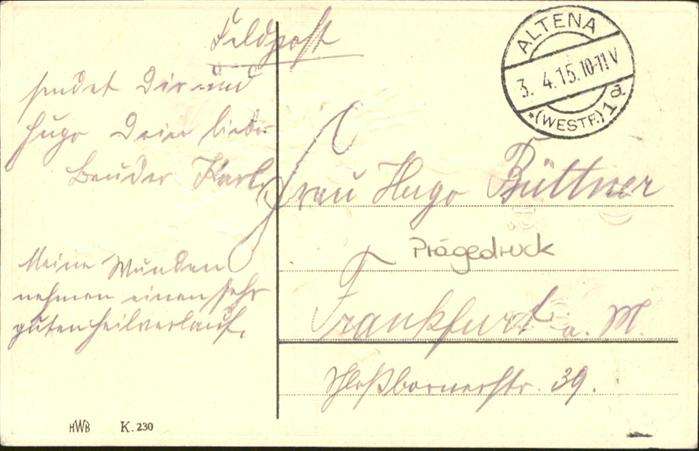 Feldpost
sendet Dir und
Hugo Dein lieber
Bruder Karl
Meine Wunden
nehmen einen sehr
guten Heilverlauf.
ALTENA
3. 4. 15. 10-11 V
* (WESTF.) 1 a
Frau Hugo Büttner
Prägedruck
Frankfurt a. M.
Schloßbornerstr. 39.
HWB K. 230